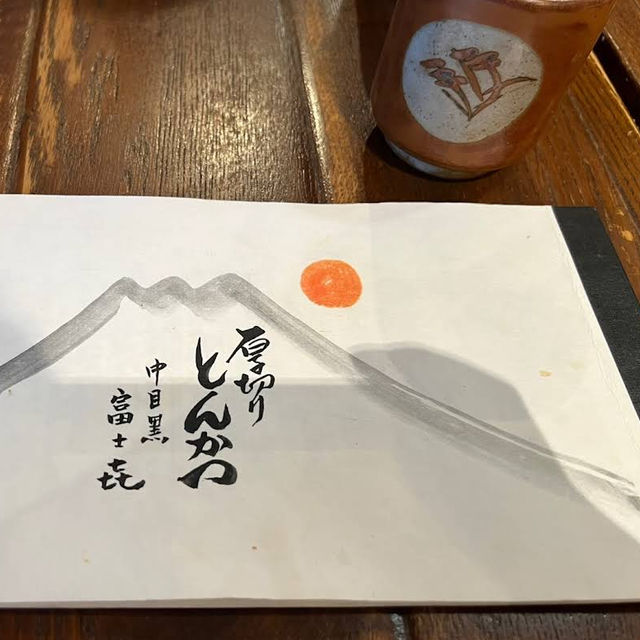 厚切り
とんかつ
中目黒
富士㐂